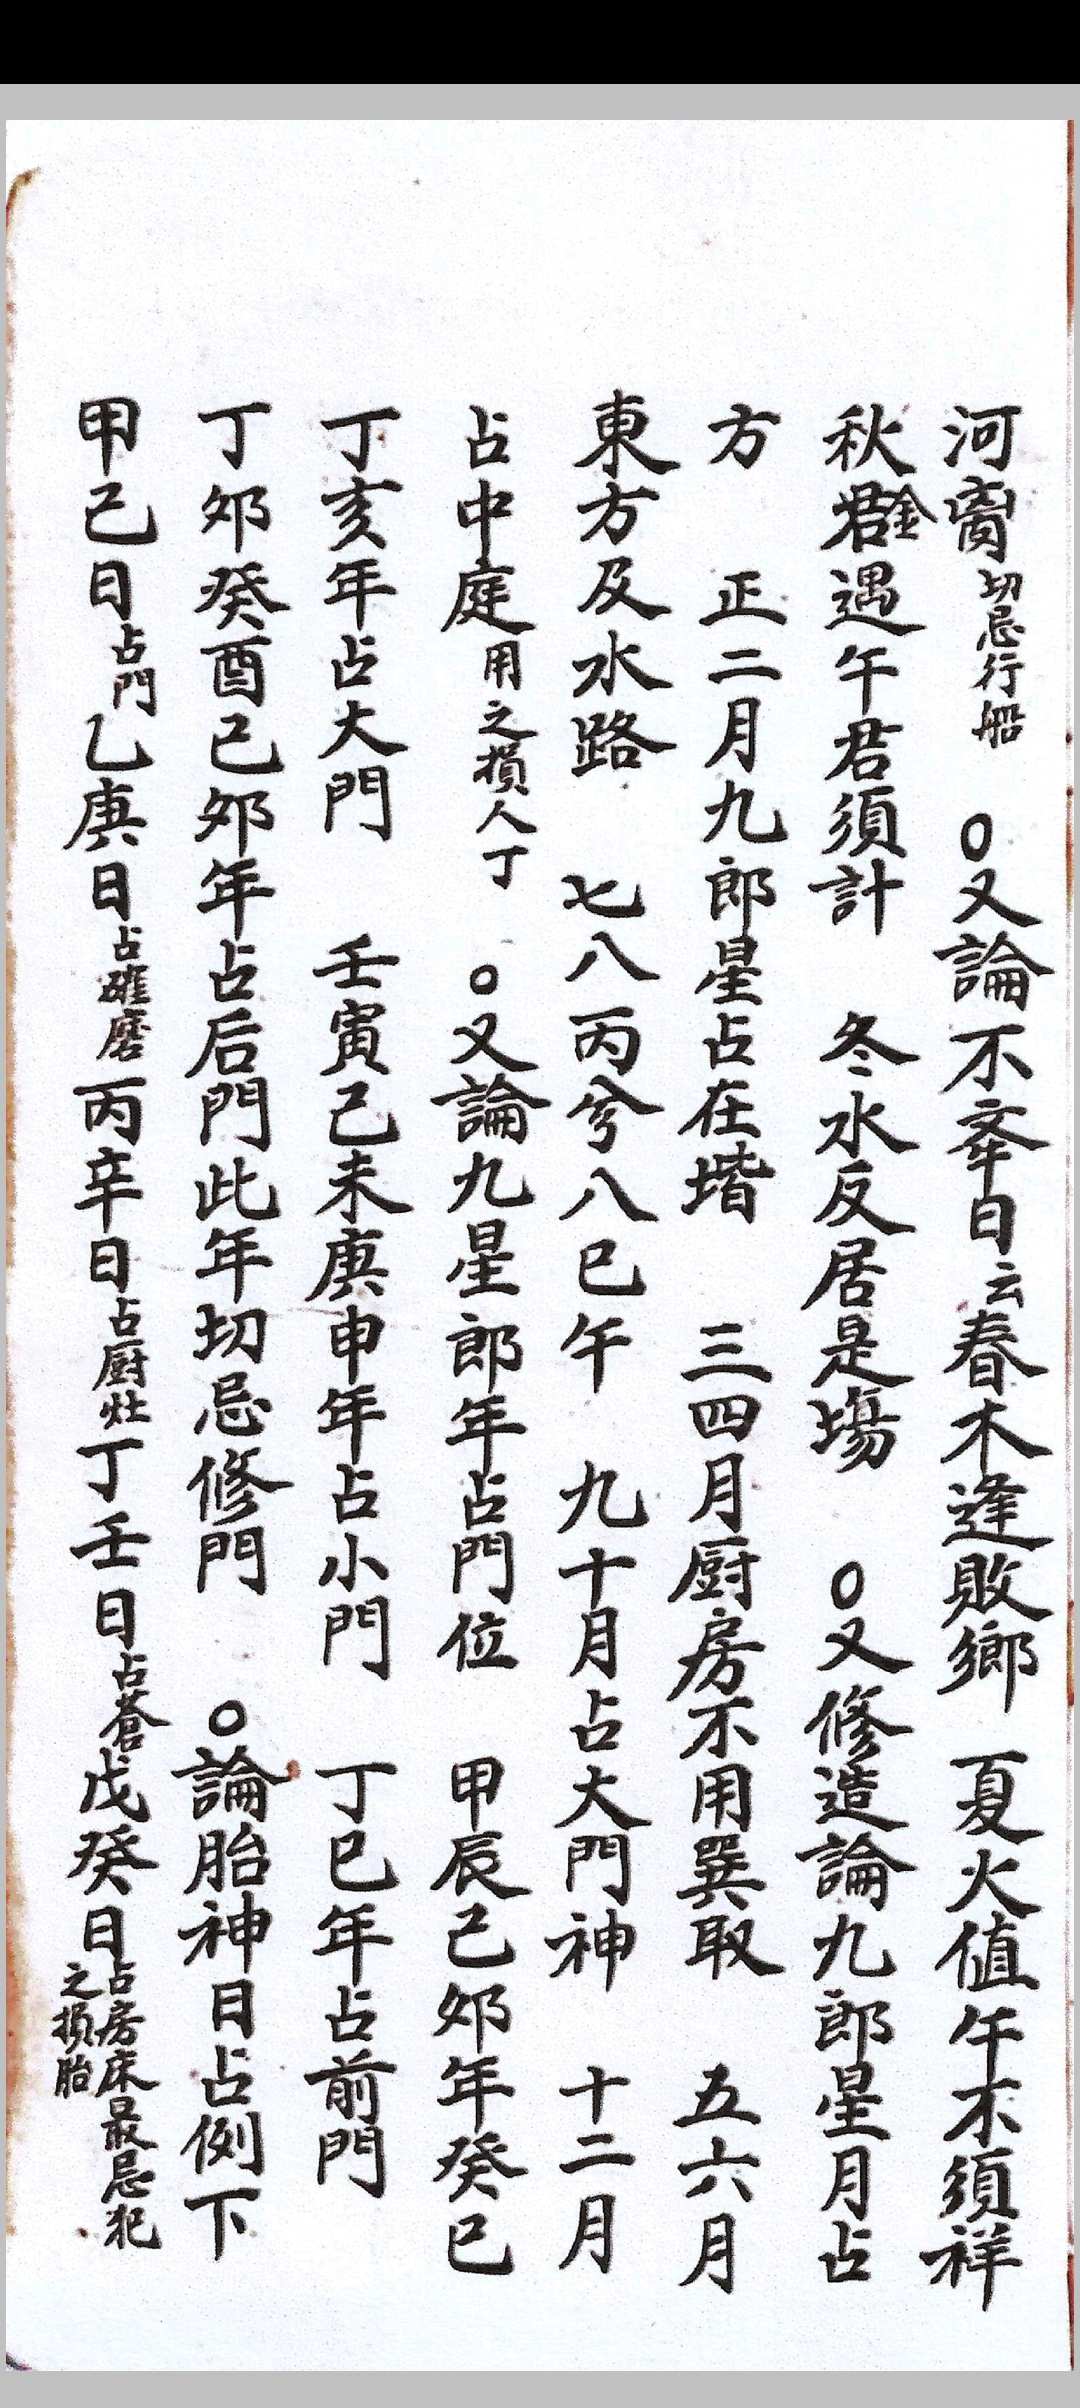 河啇切忌行船　○又論不𡴖日云春木逢敗鄉　夏火值午不須祥
秋金君遇午君須計　冬水反居是塲　○又修造論九郎星月占
方　正二月九郎星占在堦　三四月厨房不用巽取　五六月
東方及水路　七八丙兮八巳午　九十月占大門神　十二月
占中庭用之損人丁　○又論九星郎年占門位　甲辰己夘年癸巳
丁亥年占大門　壬寅己未庚申年占小門　丁巳年占前門
丁夘癸酉己夘年占后門此年切忌修門　○論胎神日占例下
甲己日占門乙庚日占碓磨丙辛日占厨灶丁壬日占蒼戊癸日占房床最忌犯之損胎